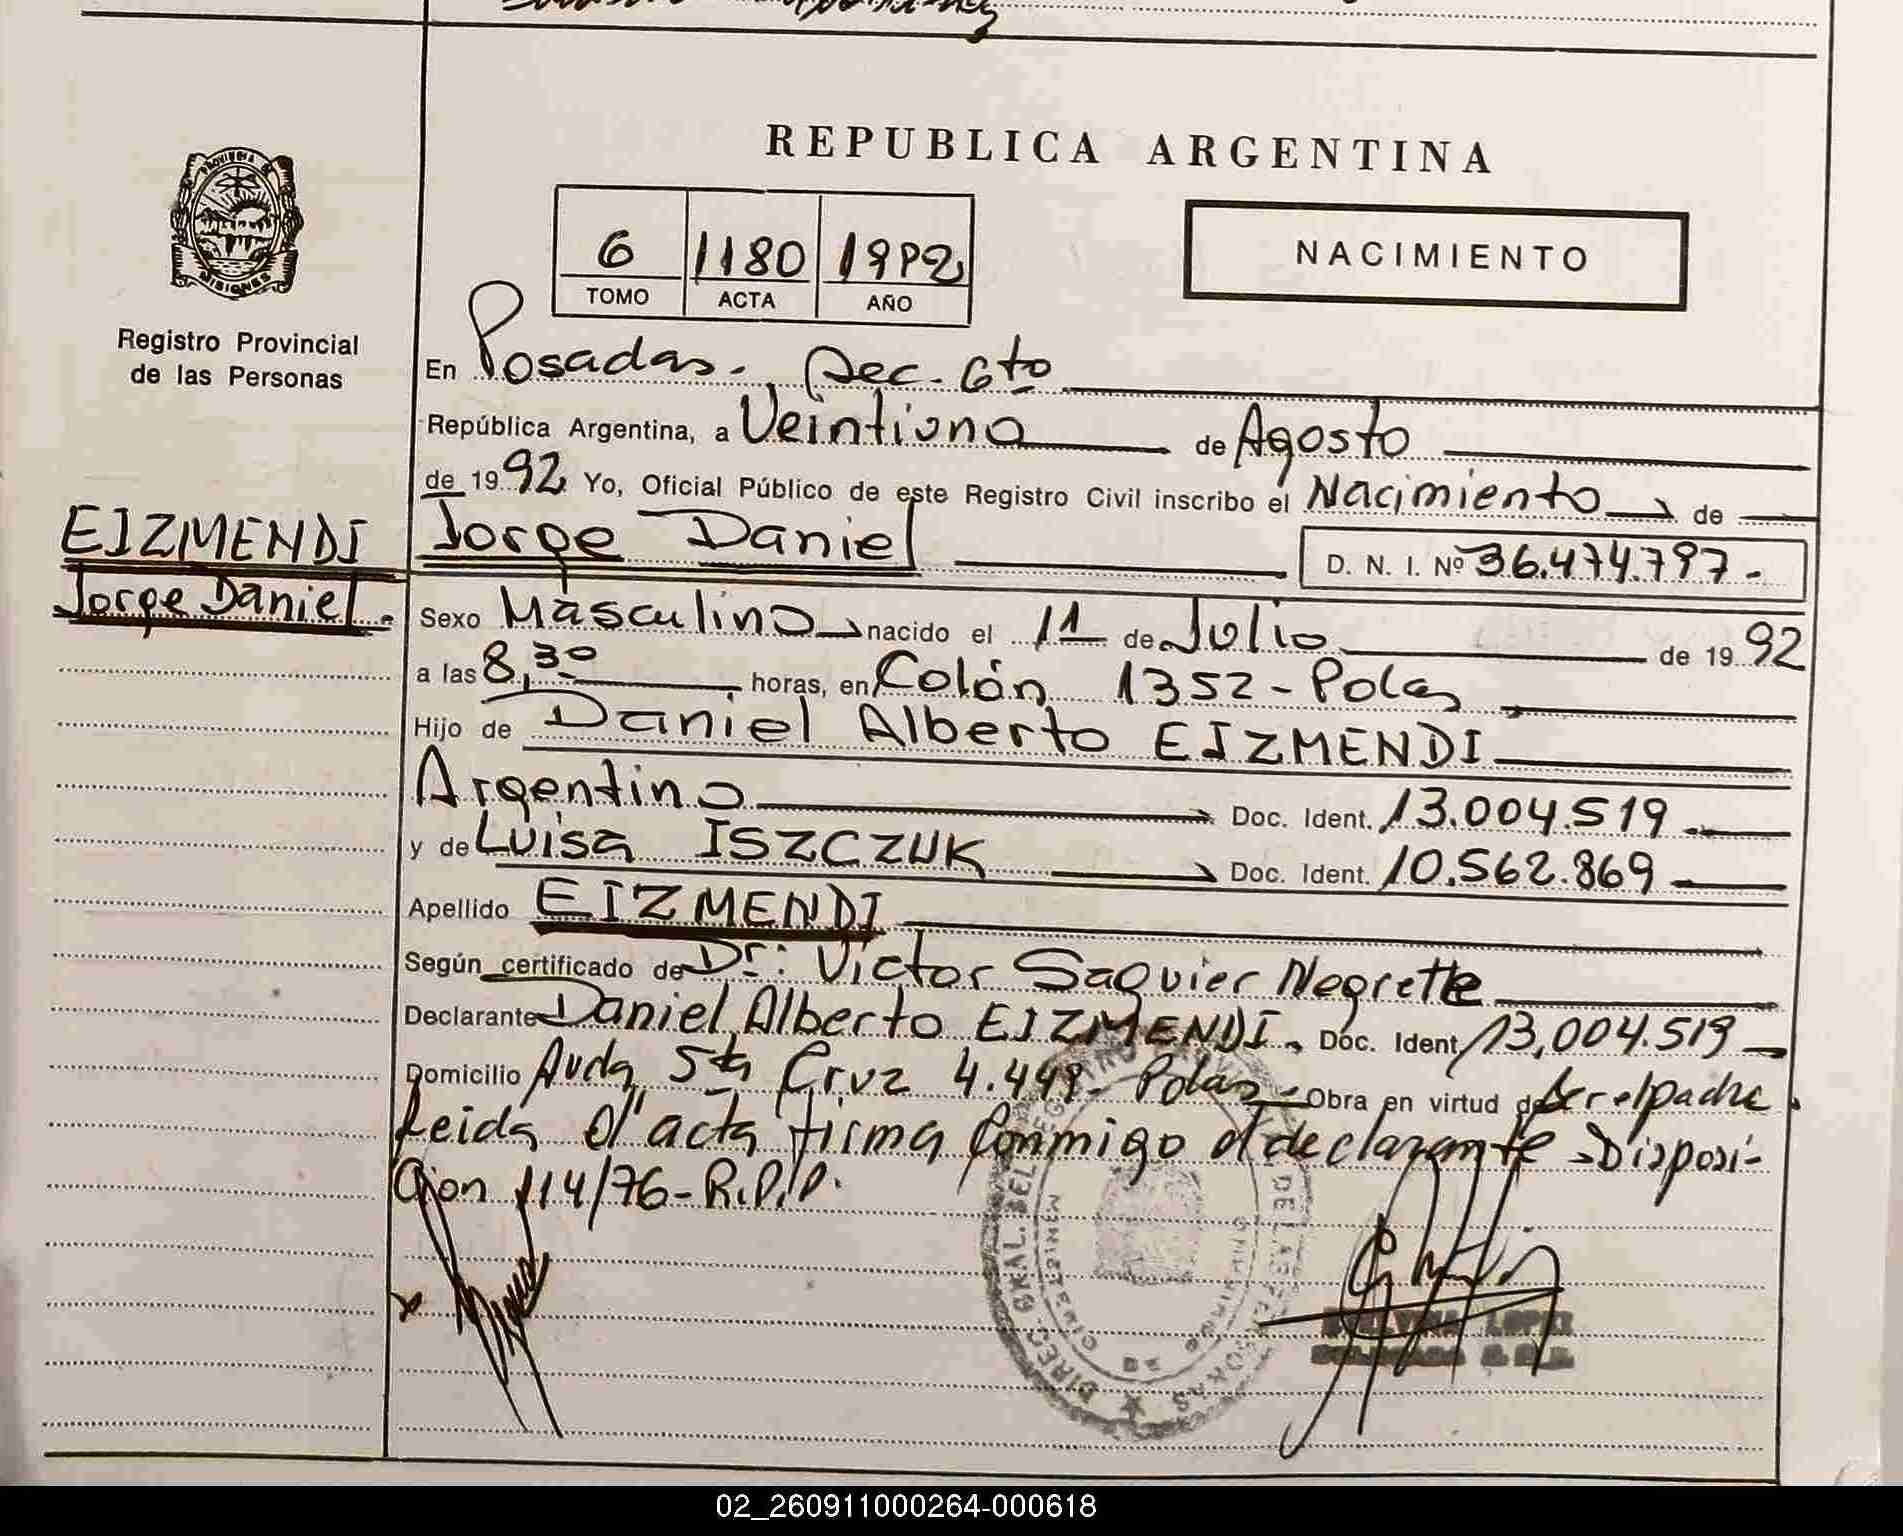 REPUBLICA ARGENTINA
PROVINCIA DE
MISIONES
Registro Provincial
de las Personas
6 1180 1992
TOMO ACTA AÑO
NACIMIENTO
En Posadas. Sec. 6to
República Argentina, a Veintiuno de Agosto
de 1992 Yo, Oficial Público de este Registro Civil inscribo el Nacimiento de
EIZMENDI
Jorge Daniel.
Jorge Daniel D. N. I. Nº 36.474.797.-
Sexo Masculino nacido el 11 de Julio de 1992
a las 8,30 horas, en Colón 1352 - Pdas
Hijo de Daniel Alberto EIZMENDI
Argentino Doc. Ident. 13.004.519.-
y de Luisa ISZCZUK Doc. Ident. 10.562.869-
Apellido EIZMENDI
Según certificado de Dr: Victor Saguier Negrette
Declarante Daniel Alberto EIZMENDI. Doc. Ident. 13,004.519-
Domicilio Avda Sta Cruz 4.449- Pdas- Obra en virtud de ser el padre.
Leida el acta firma conmigo el declarante Disposi-
cion 114/76- R.P.P.
DIREC. GRAL. DEL REGISTRO DE LAS PERSONAS
LOPEZ
02_260911000264-000618